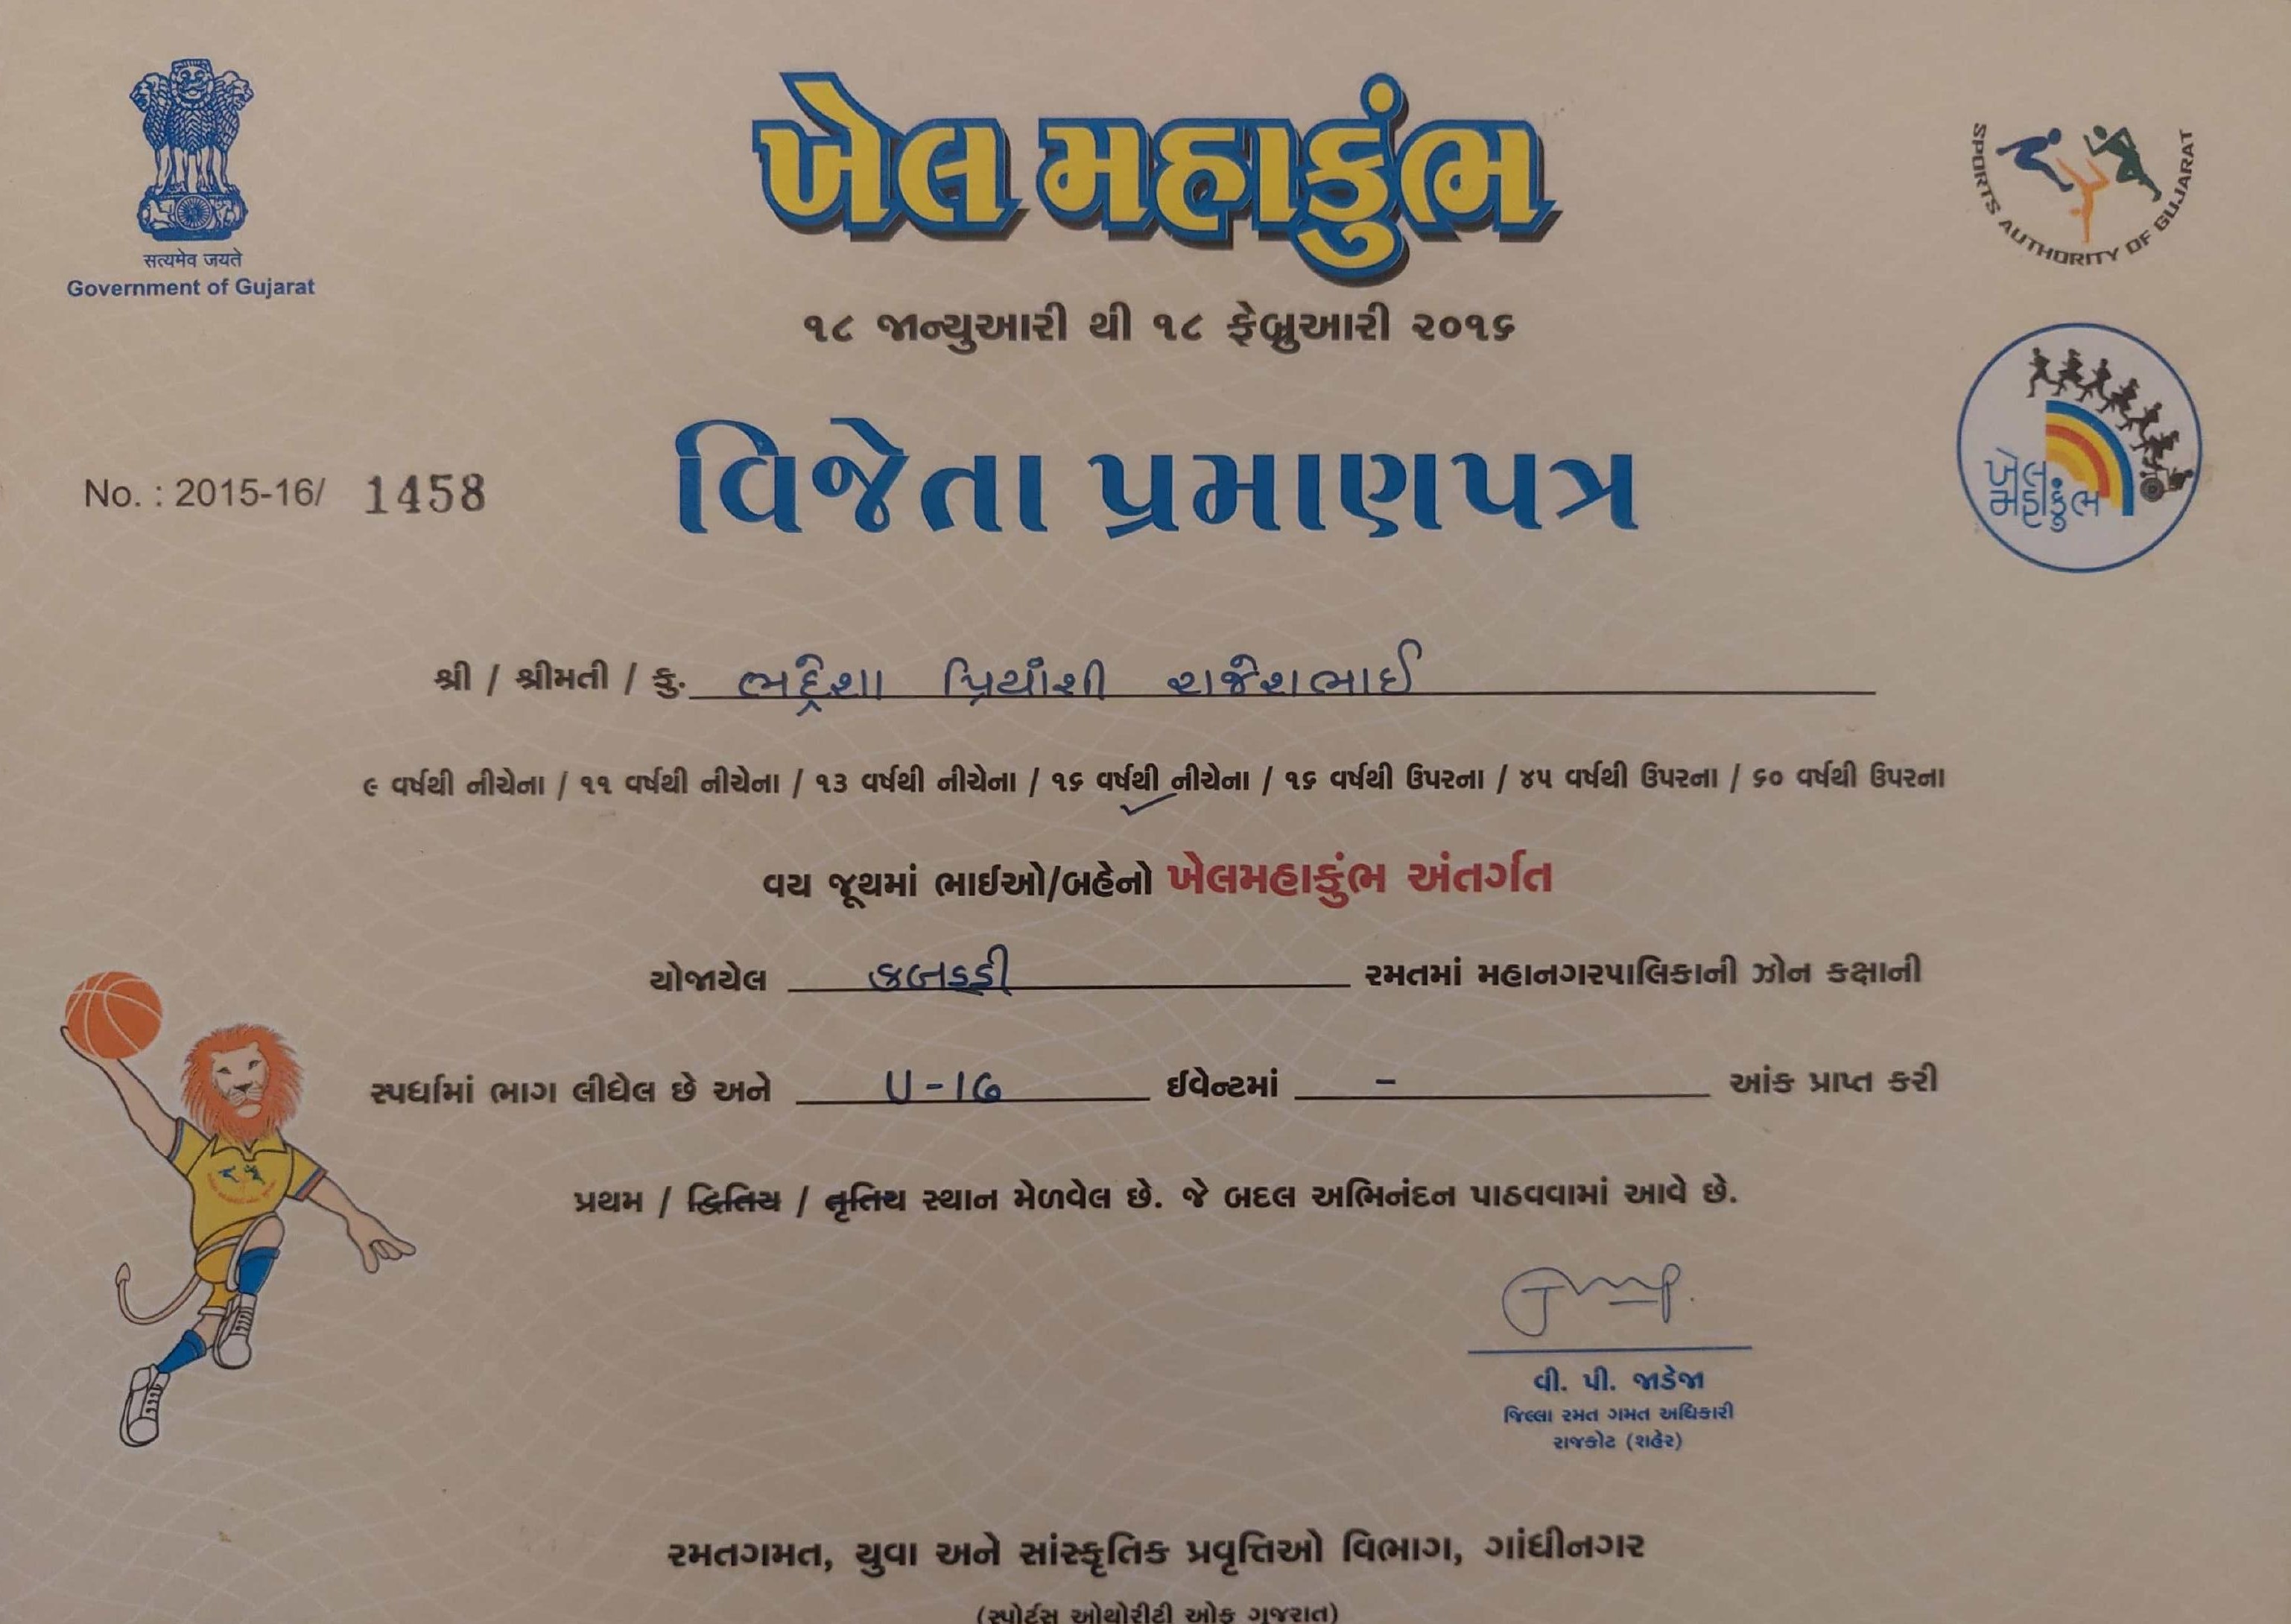 सत्यमेव जयते
Government of Gujarat
ખેલ મહાકુંભ
SPORTS AUTHORITY OF GUJARAT
૧૮ જાન્યુઆરી થી ૧૮ ફેબ્રુઆરી ૨૦૧૬
ખેલ
મહાકુંભ
No. : 2015-16/ 1458
વિજેતા પ્રમાણપત્ર
શ્રી / શ્રીમતી / કુ. ભદ્રેશા પ્રિયાંશી રાજેશભાઈ
૯ વર્ષથી નીચેના / ૧૧ વર્ષથી નીચેના / ૧૩ વર્ષથી નીચેના / ૧૬ વર્ષથી નીચેના / ૧૬ વર્ષથી ઉપરના / ૪૫ વર્ષથી ઉપરના / ૬૦ વર્ષથી ઉપરના
વય જૂથમાં ભાઈઓ/બહેનો ખેલમહાકુંભ અંતર્ગત
યોજાયેલ કબડ્ડી રમતમાં મહાનગરપાલિકાની ઝોન કક્ષાની
સ્પર્ધામાં ભાગ લીધેલ છે અને U-16 ઈવેન્ટમાં - આંક પ્રાપ્ત કરી
પ્રથમ / દ્વિતિય / તૃતિય સ્થાન મેળવેલ છે. જે બદલ અભિનંદન પાઠવવામાં આવે છે.
વી. પી. જાડેજા
જિલ્લા રમત ગમત અધિકારી
રાજકોટ (શહેર)
રમતગમત, યુવા અને સાંસ્કૃતિક પ્રવૃત્તિઓ વિભાગ, ગાંધીનગર
(સ્પોર્ટસ ઓથોરીટી ઓફ ગુજરાત)